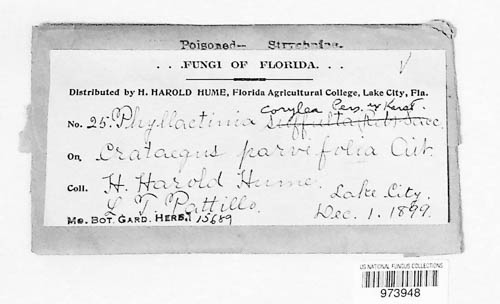 Poisoned-- Strychnine.
. . .FUNGI OF FLORIDA. . .
Distributed by H. HAROLD HUME, Florida Agricultural College, Lake City, Fla.
corylea Pers. ex Karst.
No. 25. Phyllactinia suffulta (Reb) Sacc.
On Crataegus parvifolia Ait.
Coll. H. Harold Hume.
L T Pattillo. Lake City.
Mo. BOT. GARD. HERB. 15689 Dec. 1. 1899.
US NATIONAL FUNGUS COLLECTIONS
973948